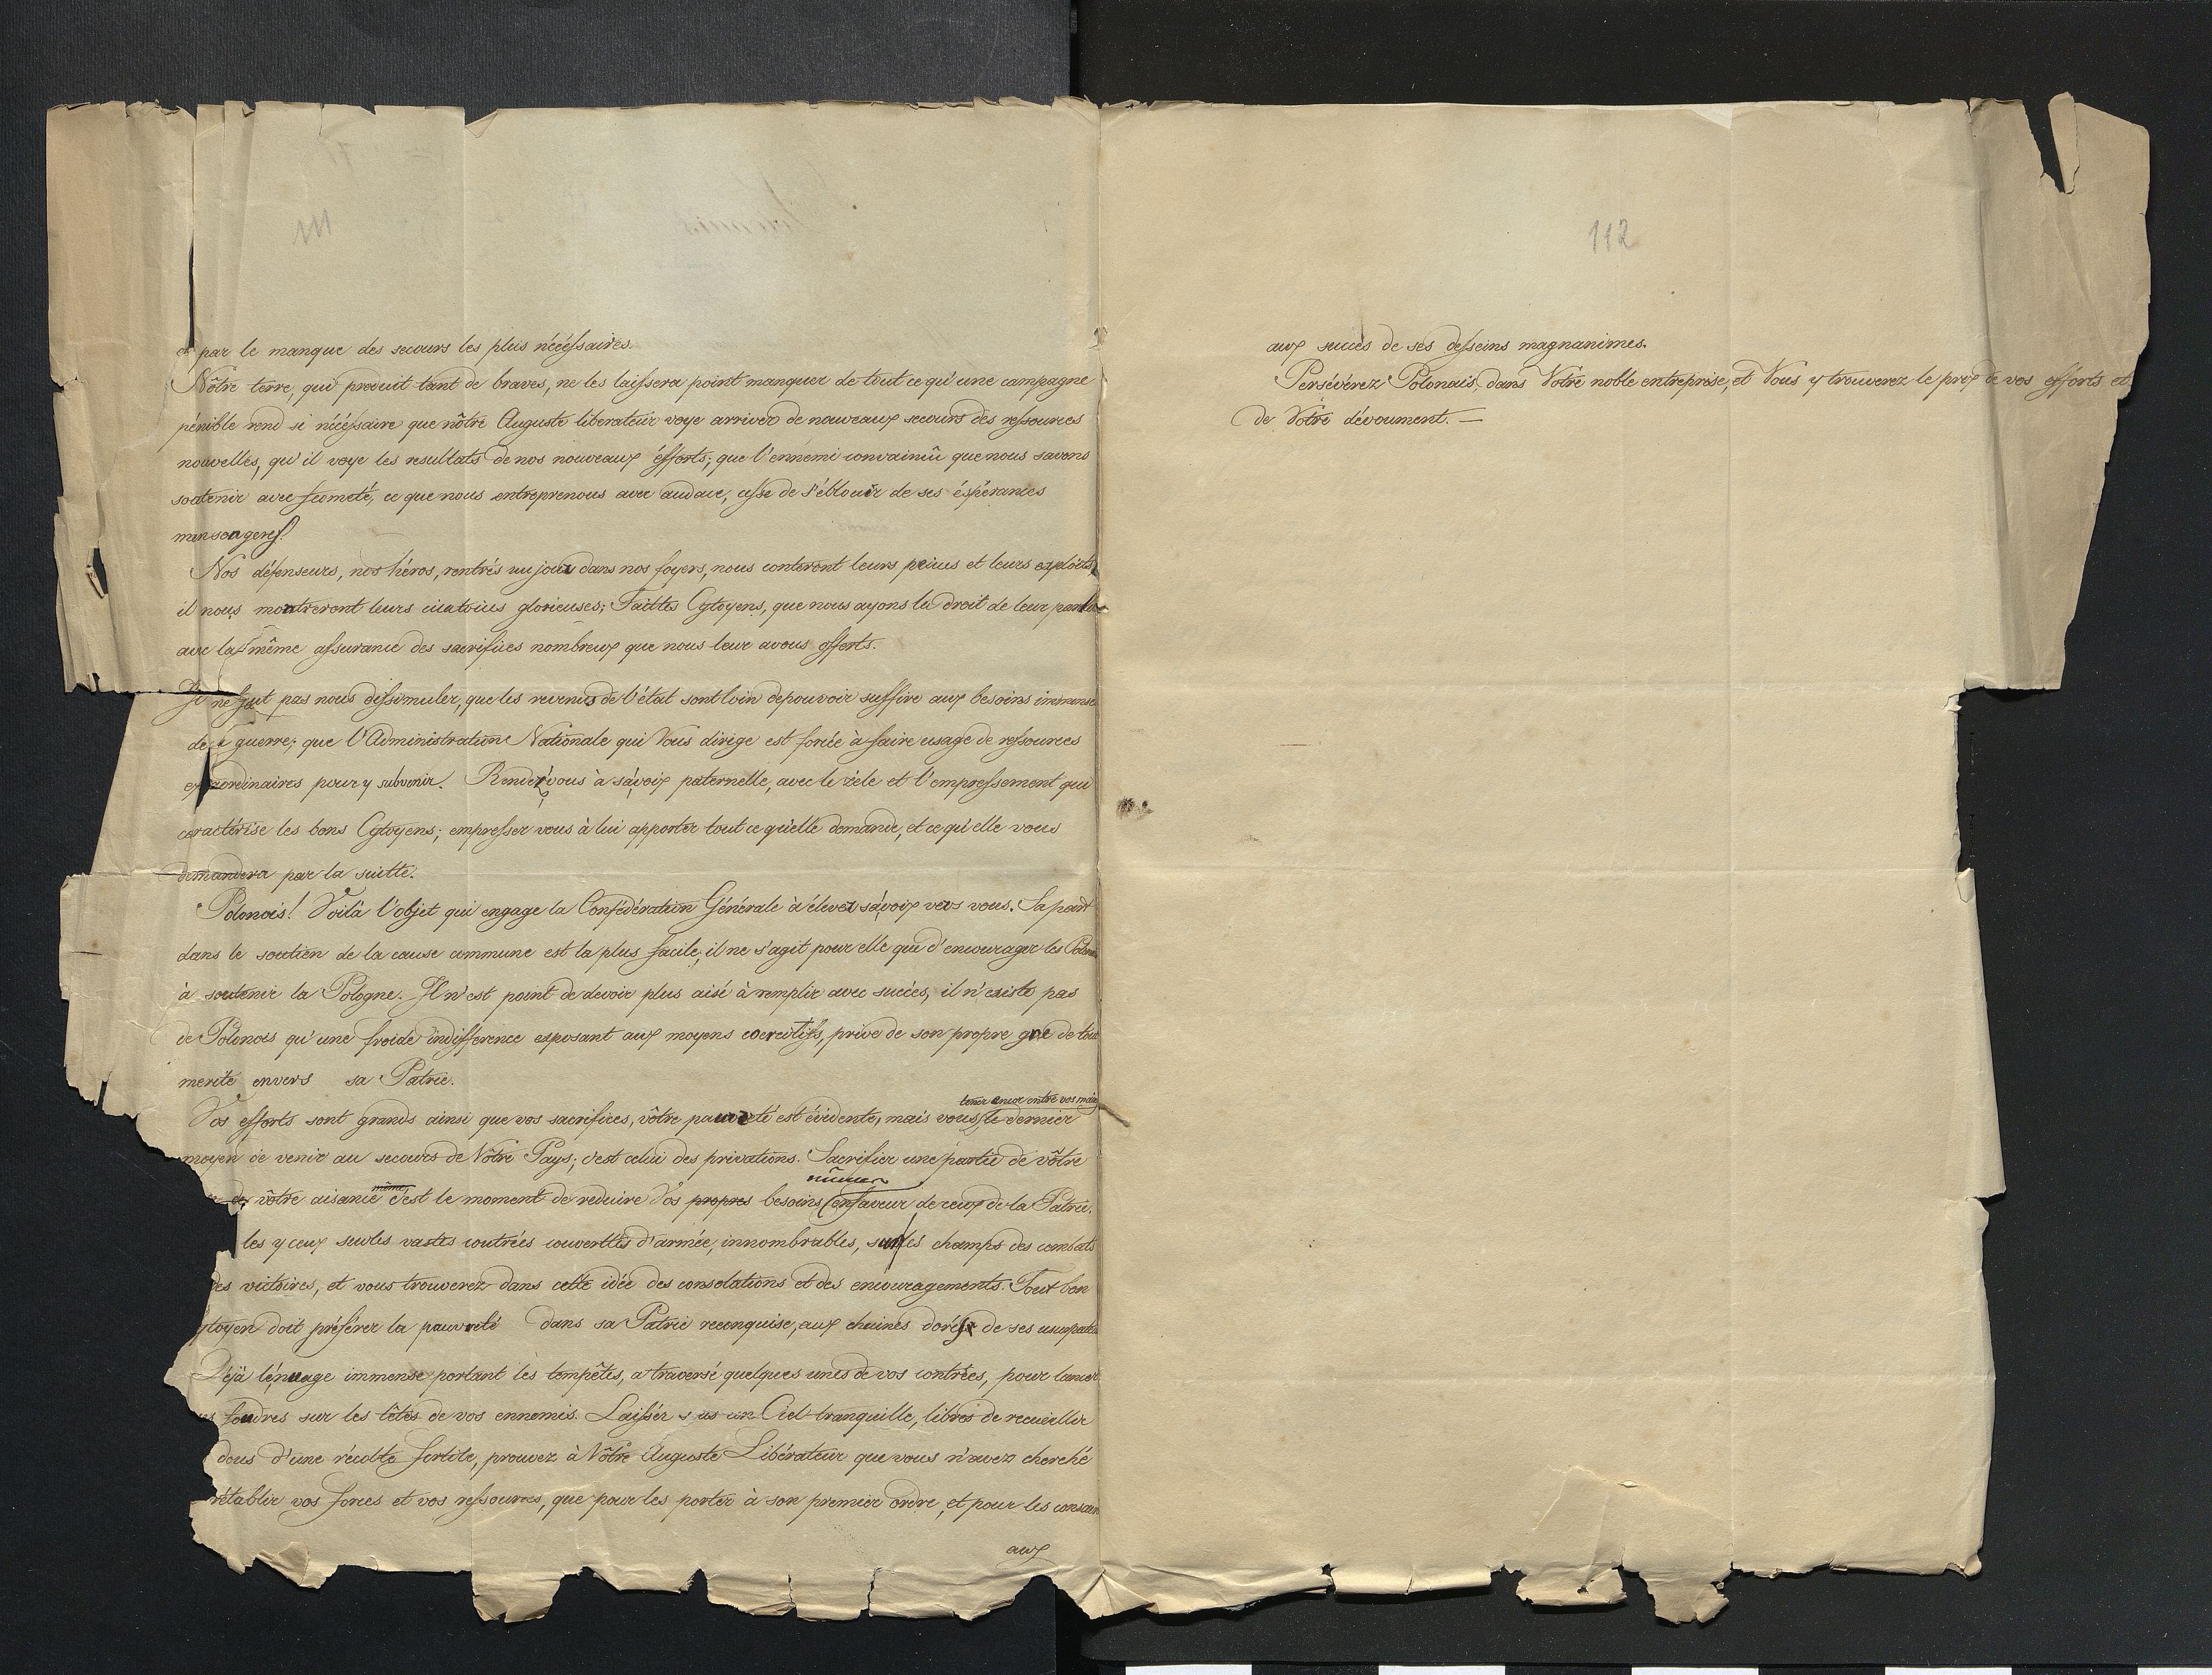 et par le manque des secours les plus nécéssaires.
Nôtre terre, qui produit tant de braves, ne les laissera point manquer de tout ce qu'une campagne
pénible rend si nécéssaire que nôtre Auguste liberateur voye arriver de nouveaux secours des ressources
nouvelles, qu'il voye les resultats de nos nouveaux éfforts; que l'ennemi convaincû que nous savons
soutenir avec fermeté, ce que nous entreprenons avec audace, cesse de s'éblouir de ses éspérances
mensongeres!
Nos défenseurs, nos héros, rentrés un jour dans nos foyers, nous conteront leurs peines et leurs exploits,
il nous montreront leurs cicatrices glorieuses; Faittes Cytoyens, que nous ayons le droit de leur parler
avec la même assurance des sacrifices nombreux que nous leur avons offerts.
Il ne faut pas nous dissimuler, que les revenus de l'état sont loin de pouvoir suffire aux besoins immenses
de la guerre; que l'Administration Nationale qui Vous dirige est forcée à faire usage de ressources
extraordinaires pour y subvenir. Rendez vous à sa voix paternelle, avec le zèle et l'empressement qui
caractérise les bons Cytoyens; empresser vous à lui apporter tout ce qu'elle demande, et ce qu'elle vous
demandera par la suitte.
Polonois! Voilà l'objet qui engage la Confédération Générale à élever sa voix vers vous. Sa part
dans le soutien de la cause commune est la plus facile; il ne s'agit pour elle que d'encourager les Polonois
à soutenir la Pologne. Il n'est point de devoir plus aisé à remplir avec succès, il n'existe pas
de Polonois qu'une froide indifference exposant aux moyens coercitifs, prive de son propre gré de tout
merite envers sa Patrie.
tener encor entre vos mains
Vos efforts sont grands ainsi que vos sacrifices, vôtre pauvreté est évidente, mais vous le dernier
moyen de venir au secours de Vôtre Pays; c'est celui des privations. Sacrifier une partie de vôtre
même
de vôtre aisance c'est le moment de reduire Vos propres besoins en faveur de ceux de la Patrie.
les yeux sur les vastes contrées couverttes d'armée, innombrables, sur les champs des combats
des victoires, et vous trouverez dans cette idée des consolations et des encouragements. Tout bon
ytoyen doit préférer la pauvreté dans sa Patrie reconquise, aux chaines dorées de ses usurpateurs
Déjà le nuage immense portant les tempêtes, a traversé quelques unes de vos contrées, pour lancer
foudres sur les têtes de vos ennemis. Laissér sous un Ciel tranquille, libres de recueillir
dons d'une récolte fertile, prouvez à Vôtre Auguste Libérateur que vous n'avez cherché
rétablir vos forces et vos ressources, que pour les porter à son premier ordre, et pour les consacrer
aux
112
aux succès de ses desseins magnanimes.
Persévérez Polonais, dans Votre noble entreprise, et Vous y trouverez le prix de vos efforts et
de Votre dévoument. —